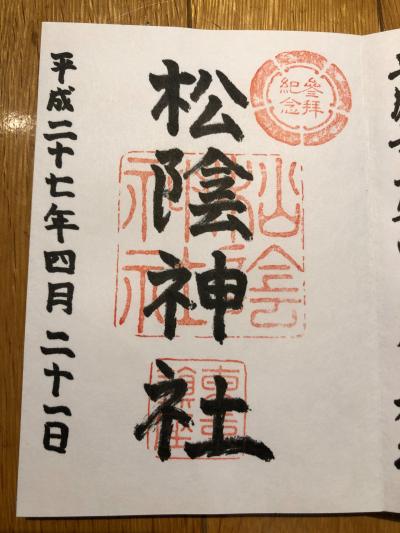 參拜
紀念
松陰神社
松陰
神社
平成二十七年四月二十一日